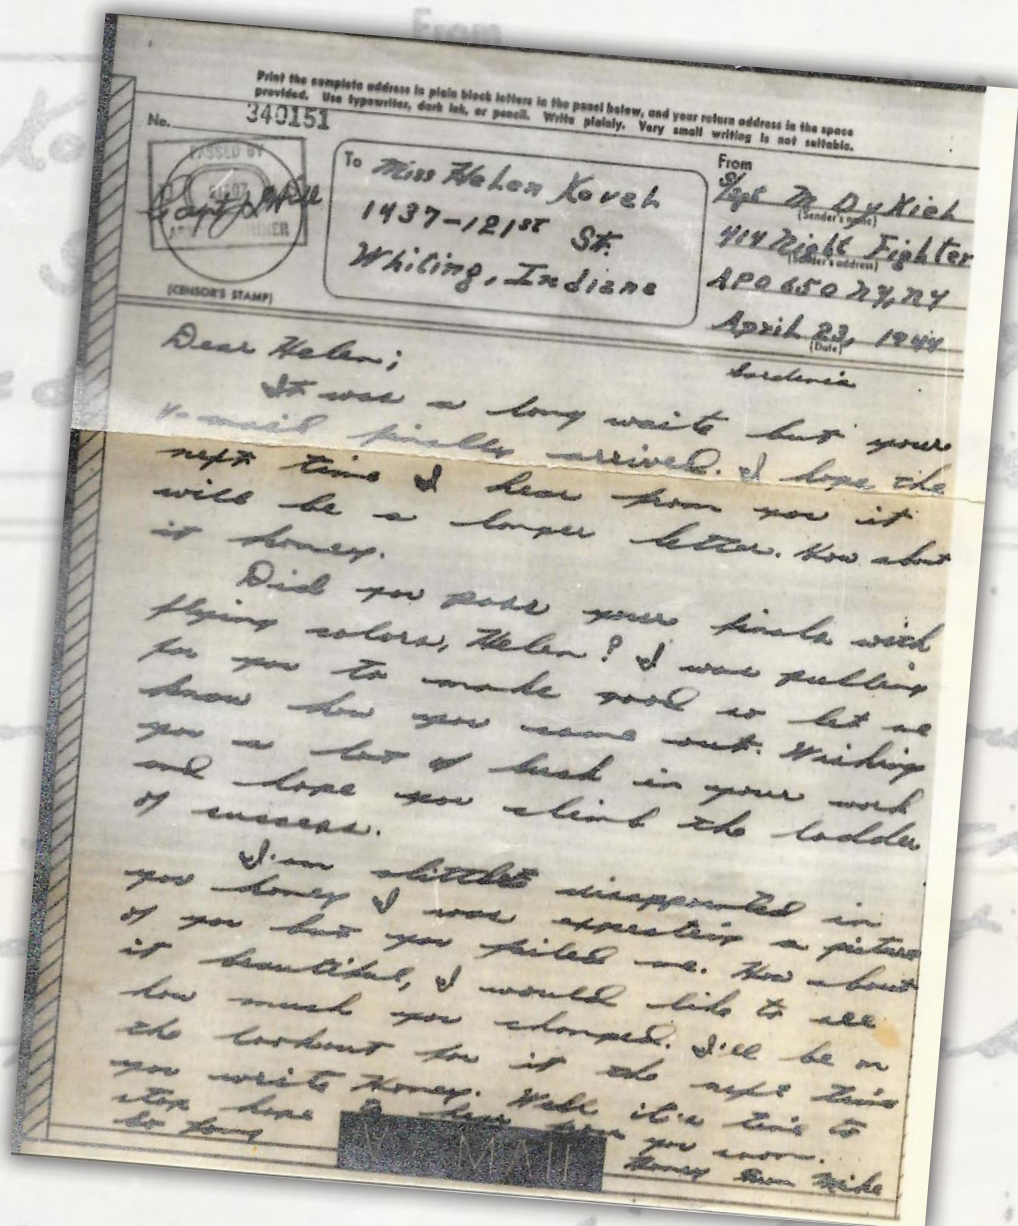 From
Print the complete address in plain block letters in the panel below, and your return address in the space
provided. Use typewriter, dark ink, or pencil. Write plainly. Very small writing is not suitable.
No. 340151
PASSED BY
ARMY EXAMINER
(CENSOR'S STAMP)
To Miss Helen Kovch
1437-121st St.
Whiting, Indiana
From
S/Sgt M Dykich
(Sender's name)
414 Night Fighter
(Sender's address)
APO 650 NY, NY
April 23, 1944
(Date)
Sardinia
Dear Helen;
It was a long waite but your
v-mail finally arrived. I hope the
next time I hear from you it
will be a longer letter. How about
it honey.
Did you pass your finals with
flying colors, Helen? I was pulling
for you to make good so let me
know how you came out. Wishing
you a lot of luck in your work
and hope you climb the ladder
of success.
I'm alittle disappointed in
you honey I was expecting a picture
of you but you failed me. How about
it beautiful, I would like to see
how much you changed. I'll be on
the lookout for it the next time
you write Honey. Well it's time to
stop hope to hear from you soon.
So long
Honey from Mike
V-MAIL